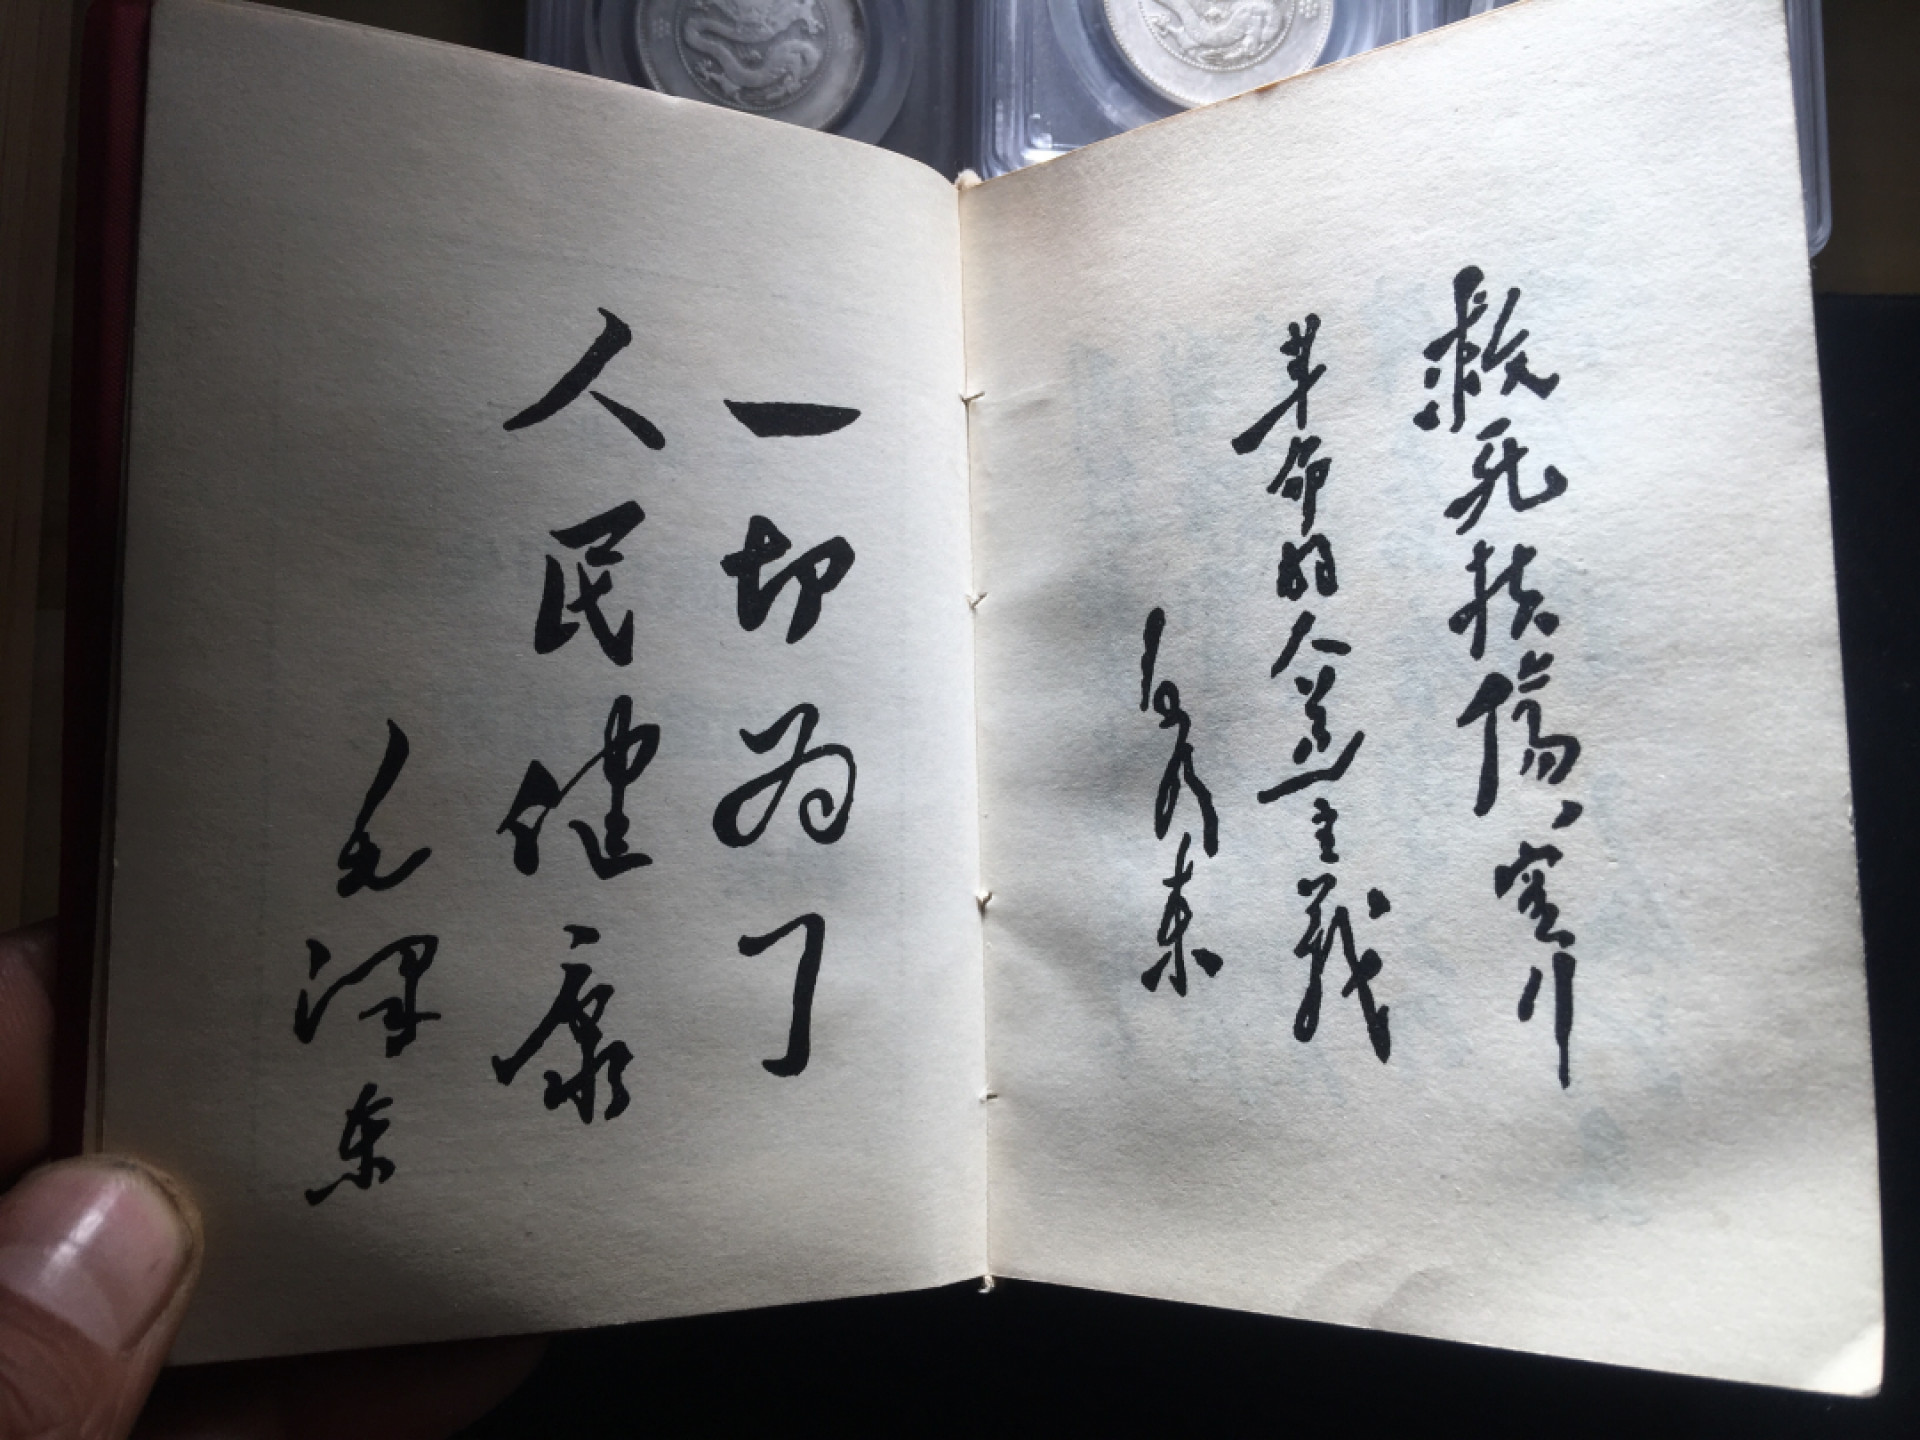 一切为了
人民健康
毛泽东
救死扶傷,实行
革命的人道主義
毛泽东